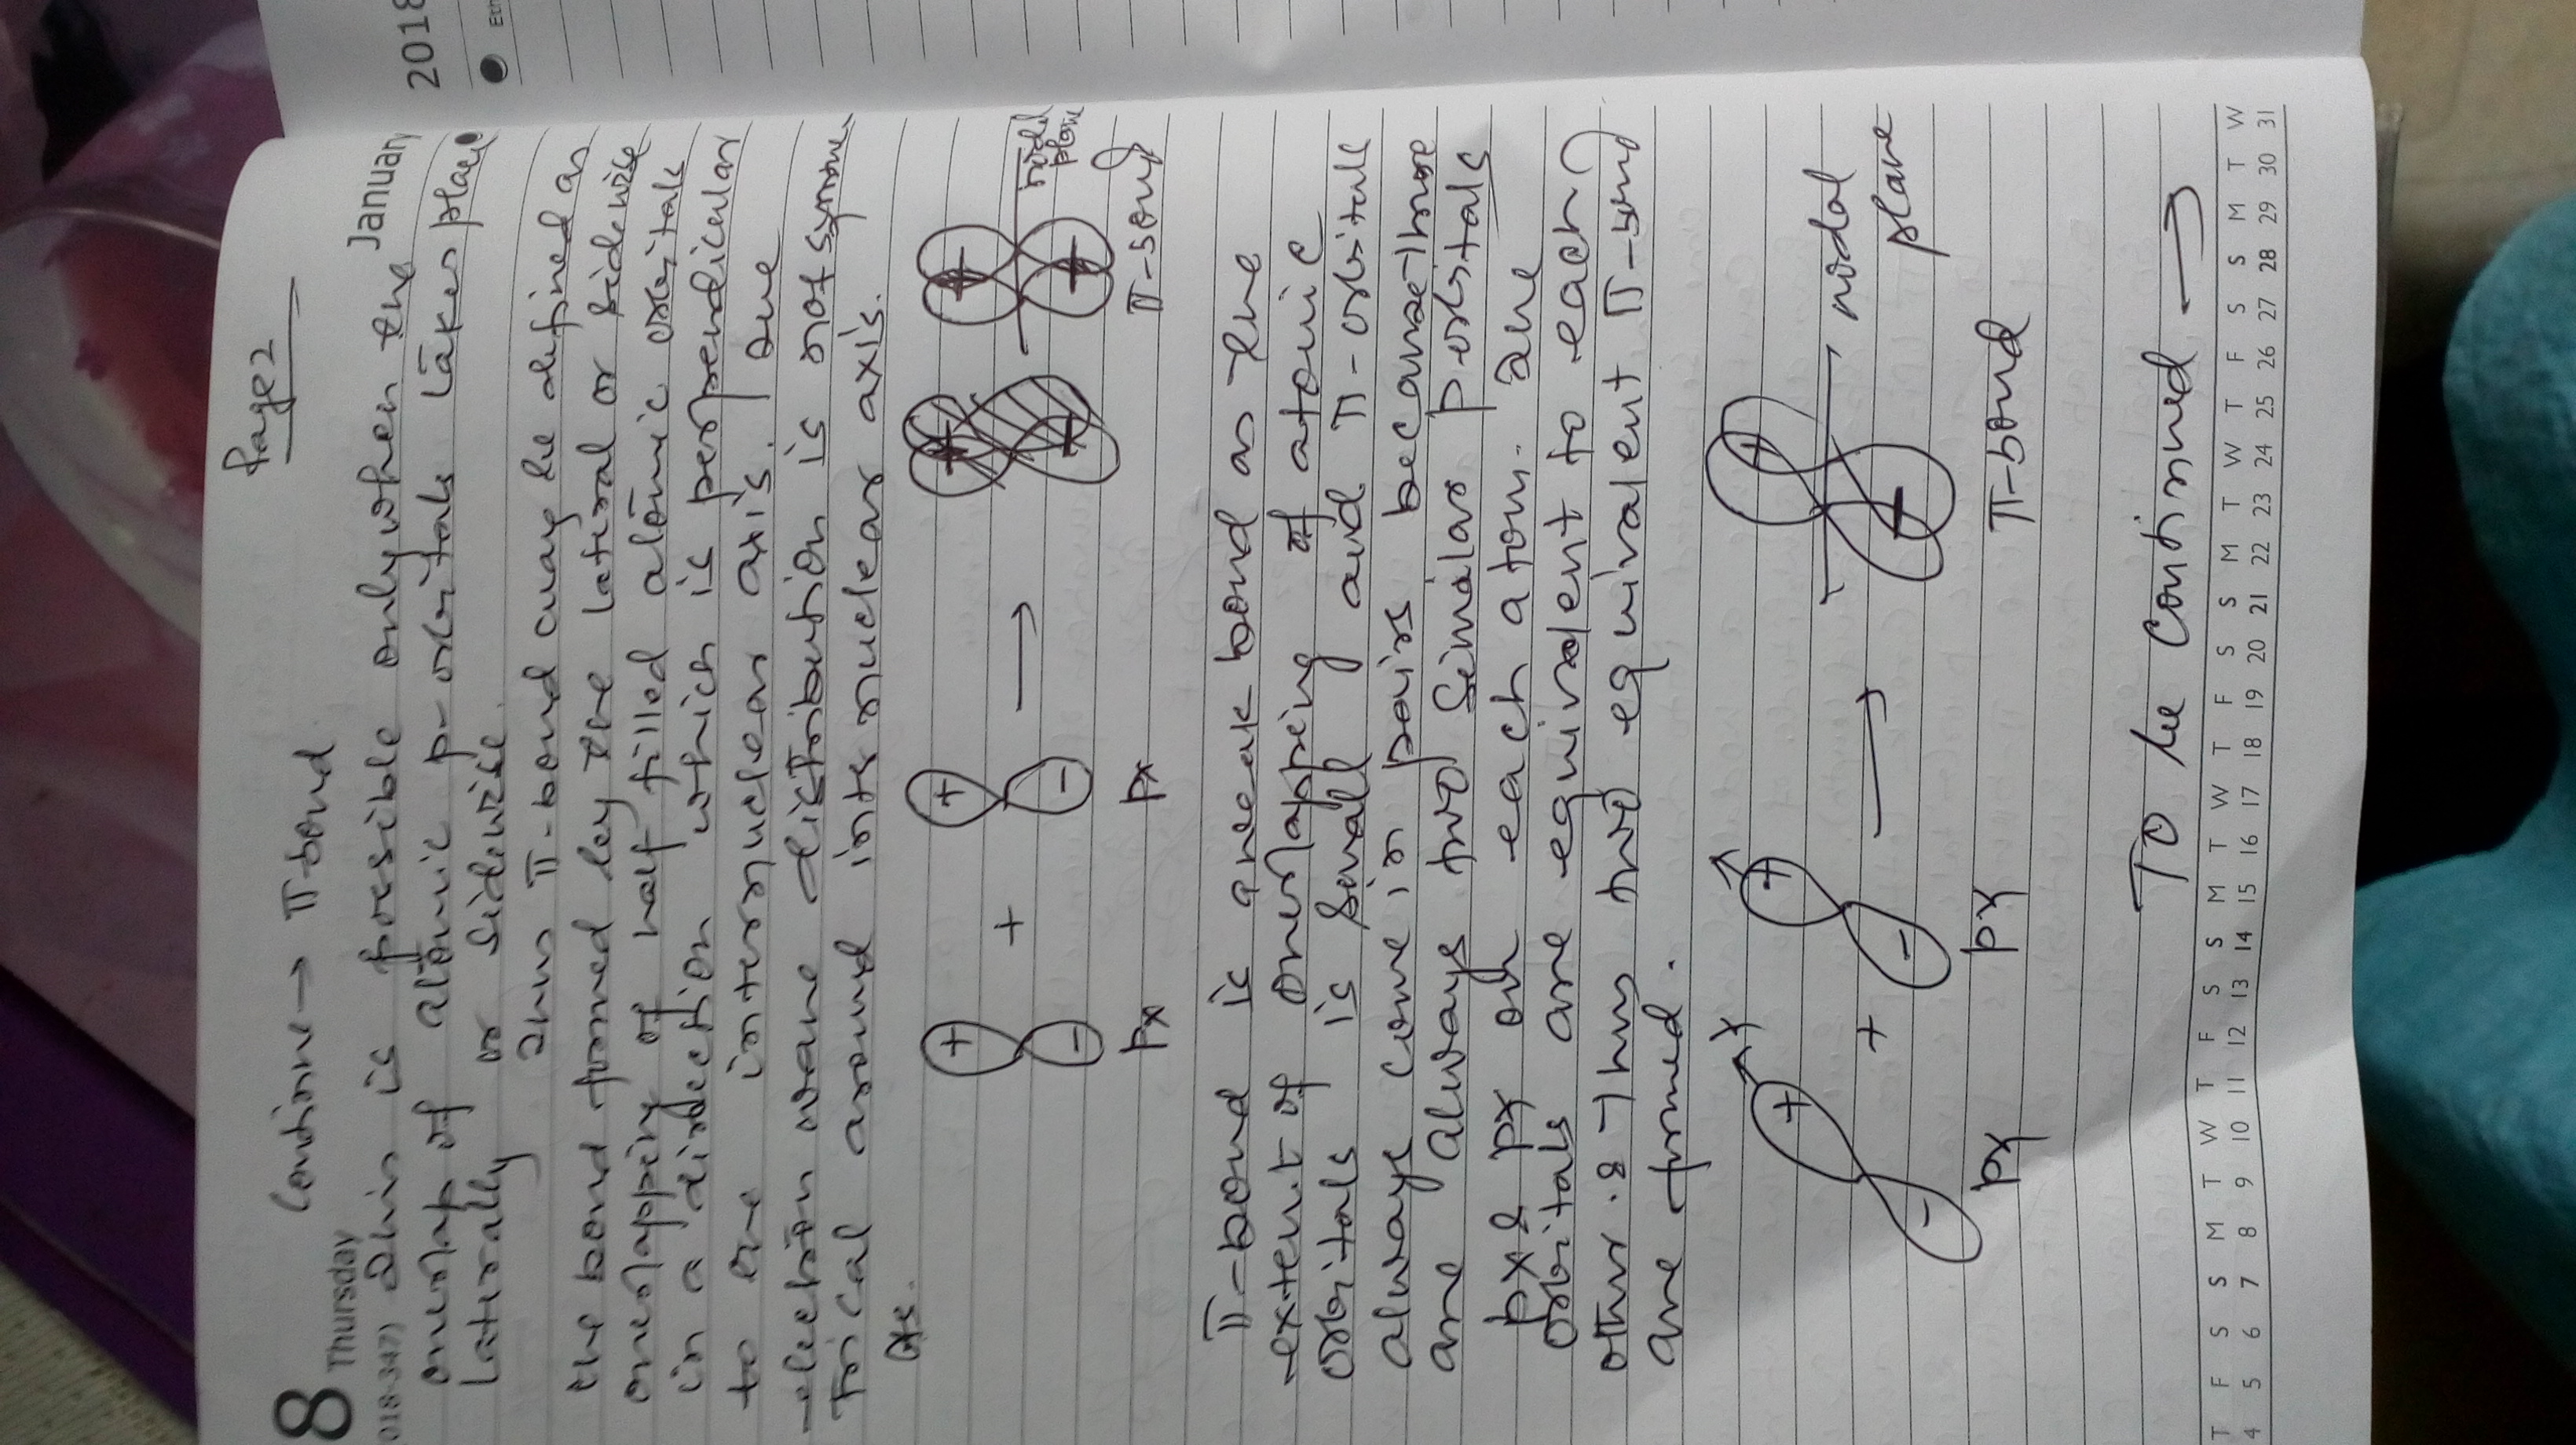 Page 2
8 Continue → π-bond
Thursday January 2018
018-347) This is possible only when the
overlap of atomic p-orbitals takes place
laterally or sidewise.
Thus π-bond may be defined as
the bond formed by the lateral or sidewise
overlapping of half filled atomic orbitals
in a direction which is perpendicular
to the internuclear axis. The
electron wave distribution is not symme-
trical around internuclear axis.
as.
+ + + +
+ → nodal plane
- - + +
Px Px π-bond
π-bond is a weak bond as the
extent of overlapping of atomic
orbitals is small and π-orbitals
always come in pairs because there
are always two similar p orbitals
px & py on each atom. are
orbitals are equivalent to each
other. Thus two equivalent π-bond
are formed.
+ + +
+ → nodal plane
- - +
py py π-bond
To be continued →
T F S S M T W T F S S M T W T F S S M T W T F S S M T W
4 5 6 7 8 9 10 11 12 13 14 15 16 17 18 19 20 21 22 23 24 25 26 27 28 29 30 31